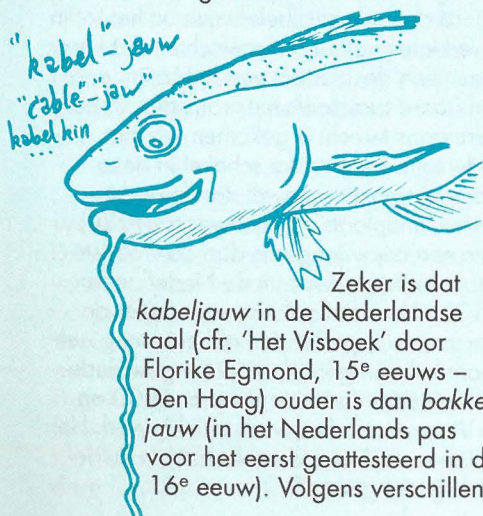 "kabel-jauw
"cable"-jaw"
kabelkin
...
Zeker is dat
kabeljauw in de Nederlandse
taal (cfr. 'Het Visboek' door
Florike Egmond, 15e eeuws –
Den Haag) ouder is dan bakke
jauw (in het Nederlands pas
voor het eerst geattesteerd in d
16e eeuw). Volgens verschillen